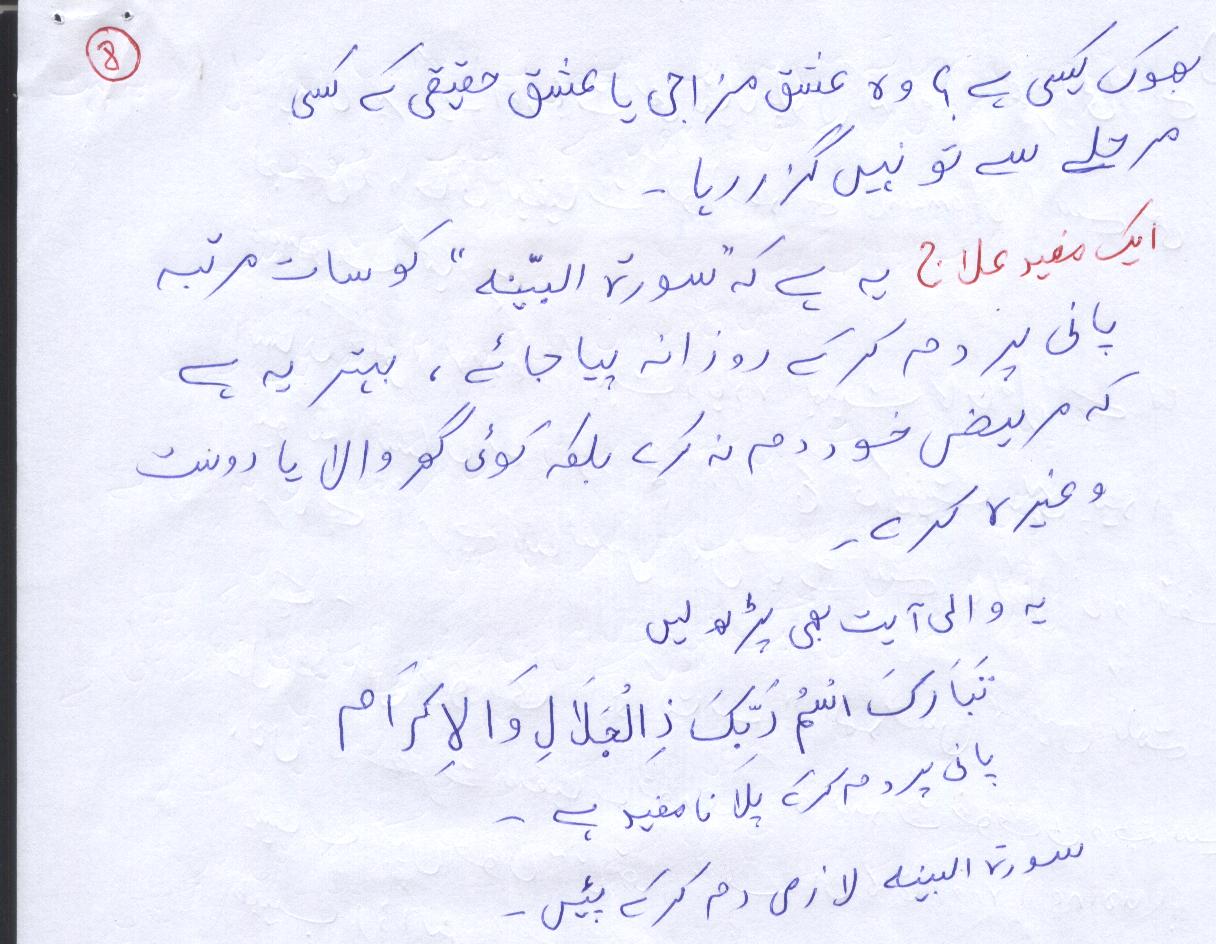 ۵
بھوک کیسی ہے؟ وہ عشق مزاجی یا عشق حقیقی کے کسی
مرحلے سے تو نہیں گزر رہا۔
ایک مفید علاج یہ ہے کہ "سورۃ البیّنہ" کو سات مرتبہ
پانی پر دم کر کے روزانہ پیا جائے، بہتر یہ ہے
کہ مریض خود دم نہ کرے بلکہ کوئی گھر والا یا دوست
وغیرہ کرے۔
یہ والی آیت بھی پڑھ لیں
تَبَارَکَ اسْمُ رَبِّکَ ذِالْجَلَالِ وَالاِکرَام
پانی پر دم کر کے پلانا مفید ہے۔
سورۃ البینہ لازمی دم کر کے پئیں۔